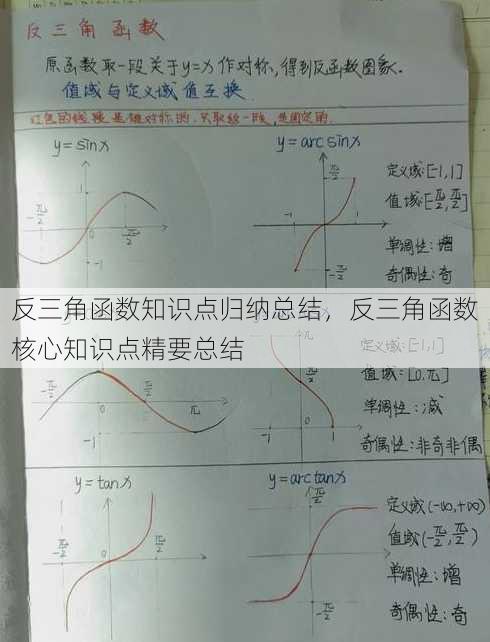 反三角函数
原函数取一段关于y=x作对称,得到反函数图象.
值域与定义域值互换.
红色的线段是被对称的,只取这一段,是固定的.
y=sinx
y=arcsinx
定义域:[-1,1]
值域:[-π/2,π/2]
单调性:增
奇偶性:奇
1
-π/2
0
π/2
-1
π/2
-1
1
-π/2
反三角函数知识点归纳总结，反三角函数
核心知识点精要总结
定义域:[-1,1]
值域:[0,π]
单调性:减
奇偶性:非奇非偶
-π/2
0
π/2
π
-1
-1
0
1
y=tanx
y=arctanx
定义域(-∞,+∞)
值域(-π/2,π/2)
单调性:增
奇偶性:奇
-π/2
0
π/2
π/2
0
-π/2